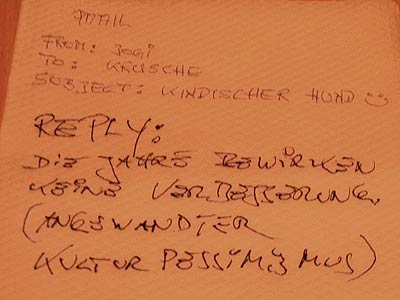 EMAIL
FROM: JOGI
TO: KRUSCHE
SUBJECT: KINDISCHER HUND ☺
REPLY:
DIE JAHRE BEWIRKEN
KEINE VERBESSERUNG.
(ANGEWANDTER
KULTUR PESSIMISMUS)